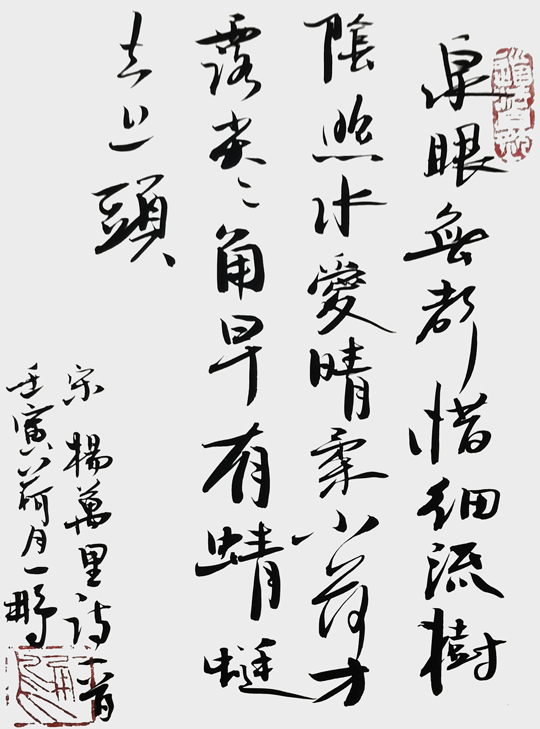 泉眼無聲惜細流樹
陰照水愛晴柔小荷才
露尖々角早有蜻蜓
立上頭
宋楊萬里詩一首
壬寅荷月一